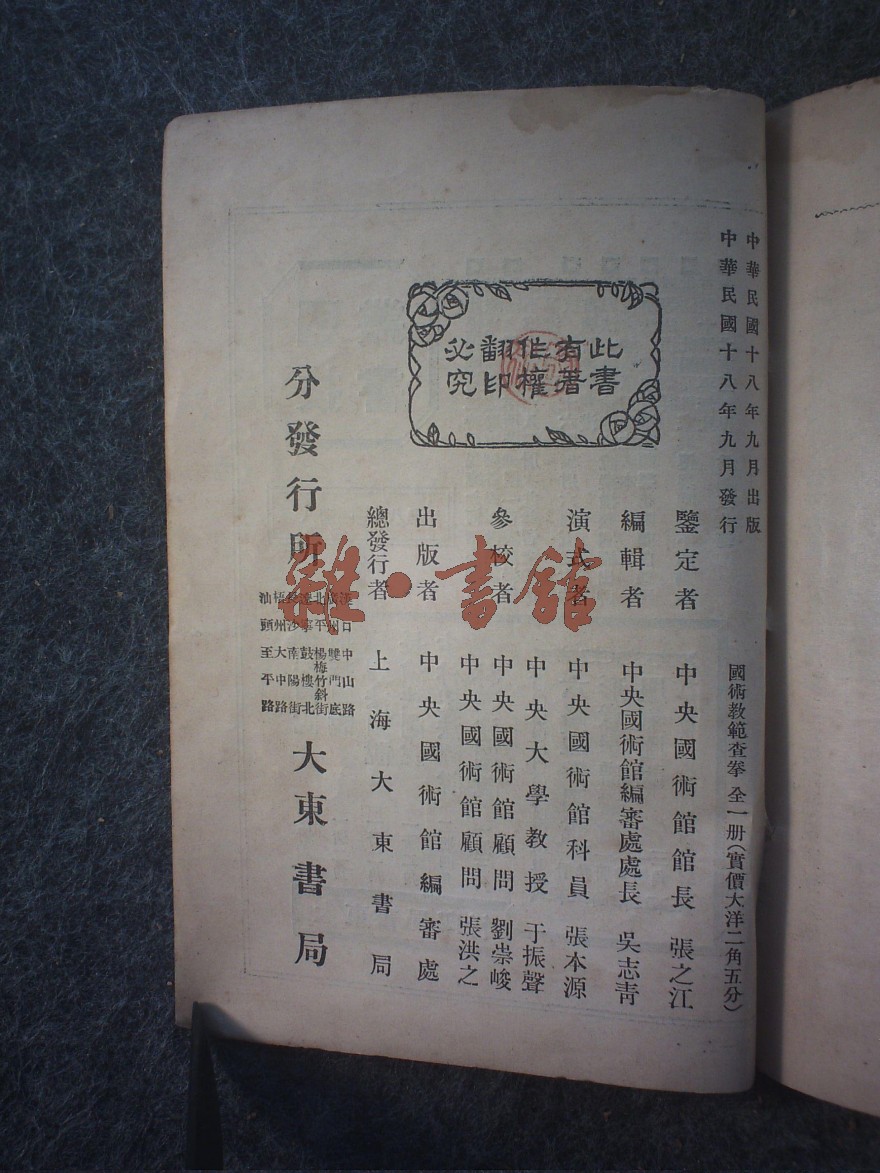 中華民國十八年九月出版
中華民國十八年九月發行
國術教範查拳 全一册(實價大洋二角五分)
此書
有著
作權
翻印
必究
鑒定者 中央國術館館長 張之江
編輯者 中央國術館編審處處長 吳志青
演式者 中央國術館科員 張本源
參校者
中央大學教授 于振聲
中央國術館顧問 劉崇峻
中央國術館顧問 張洪之
出版者 中央國術館編審處
總發行者 上海大東書局
分發行所
中山路
雙門底
北平 楊梅竹斜街
鼓樓北
南陽街
梧州 大中路
汕頭 至平路
大東書局
雜·書館